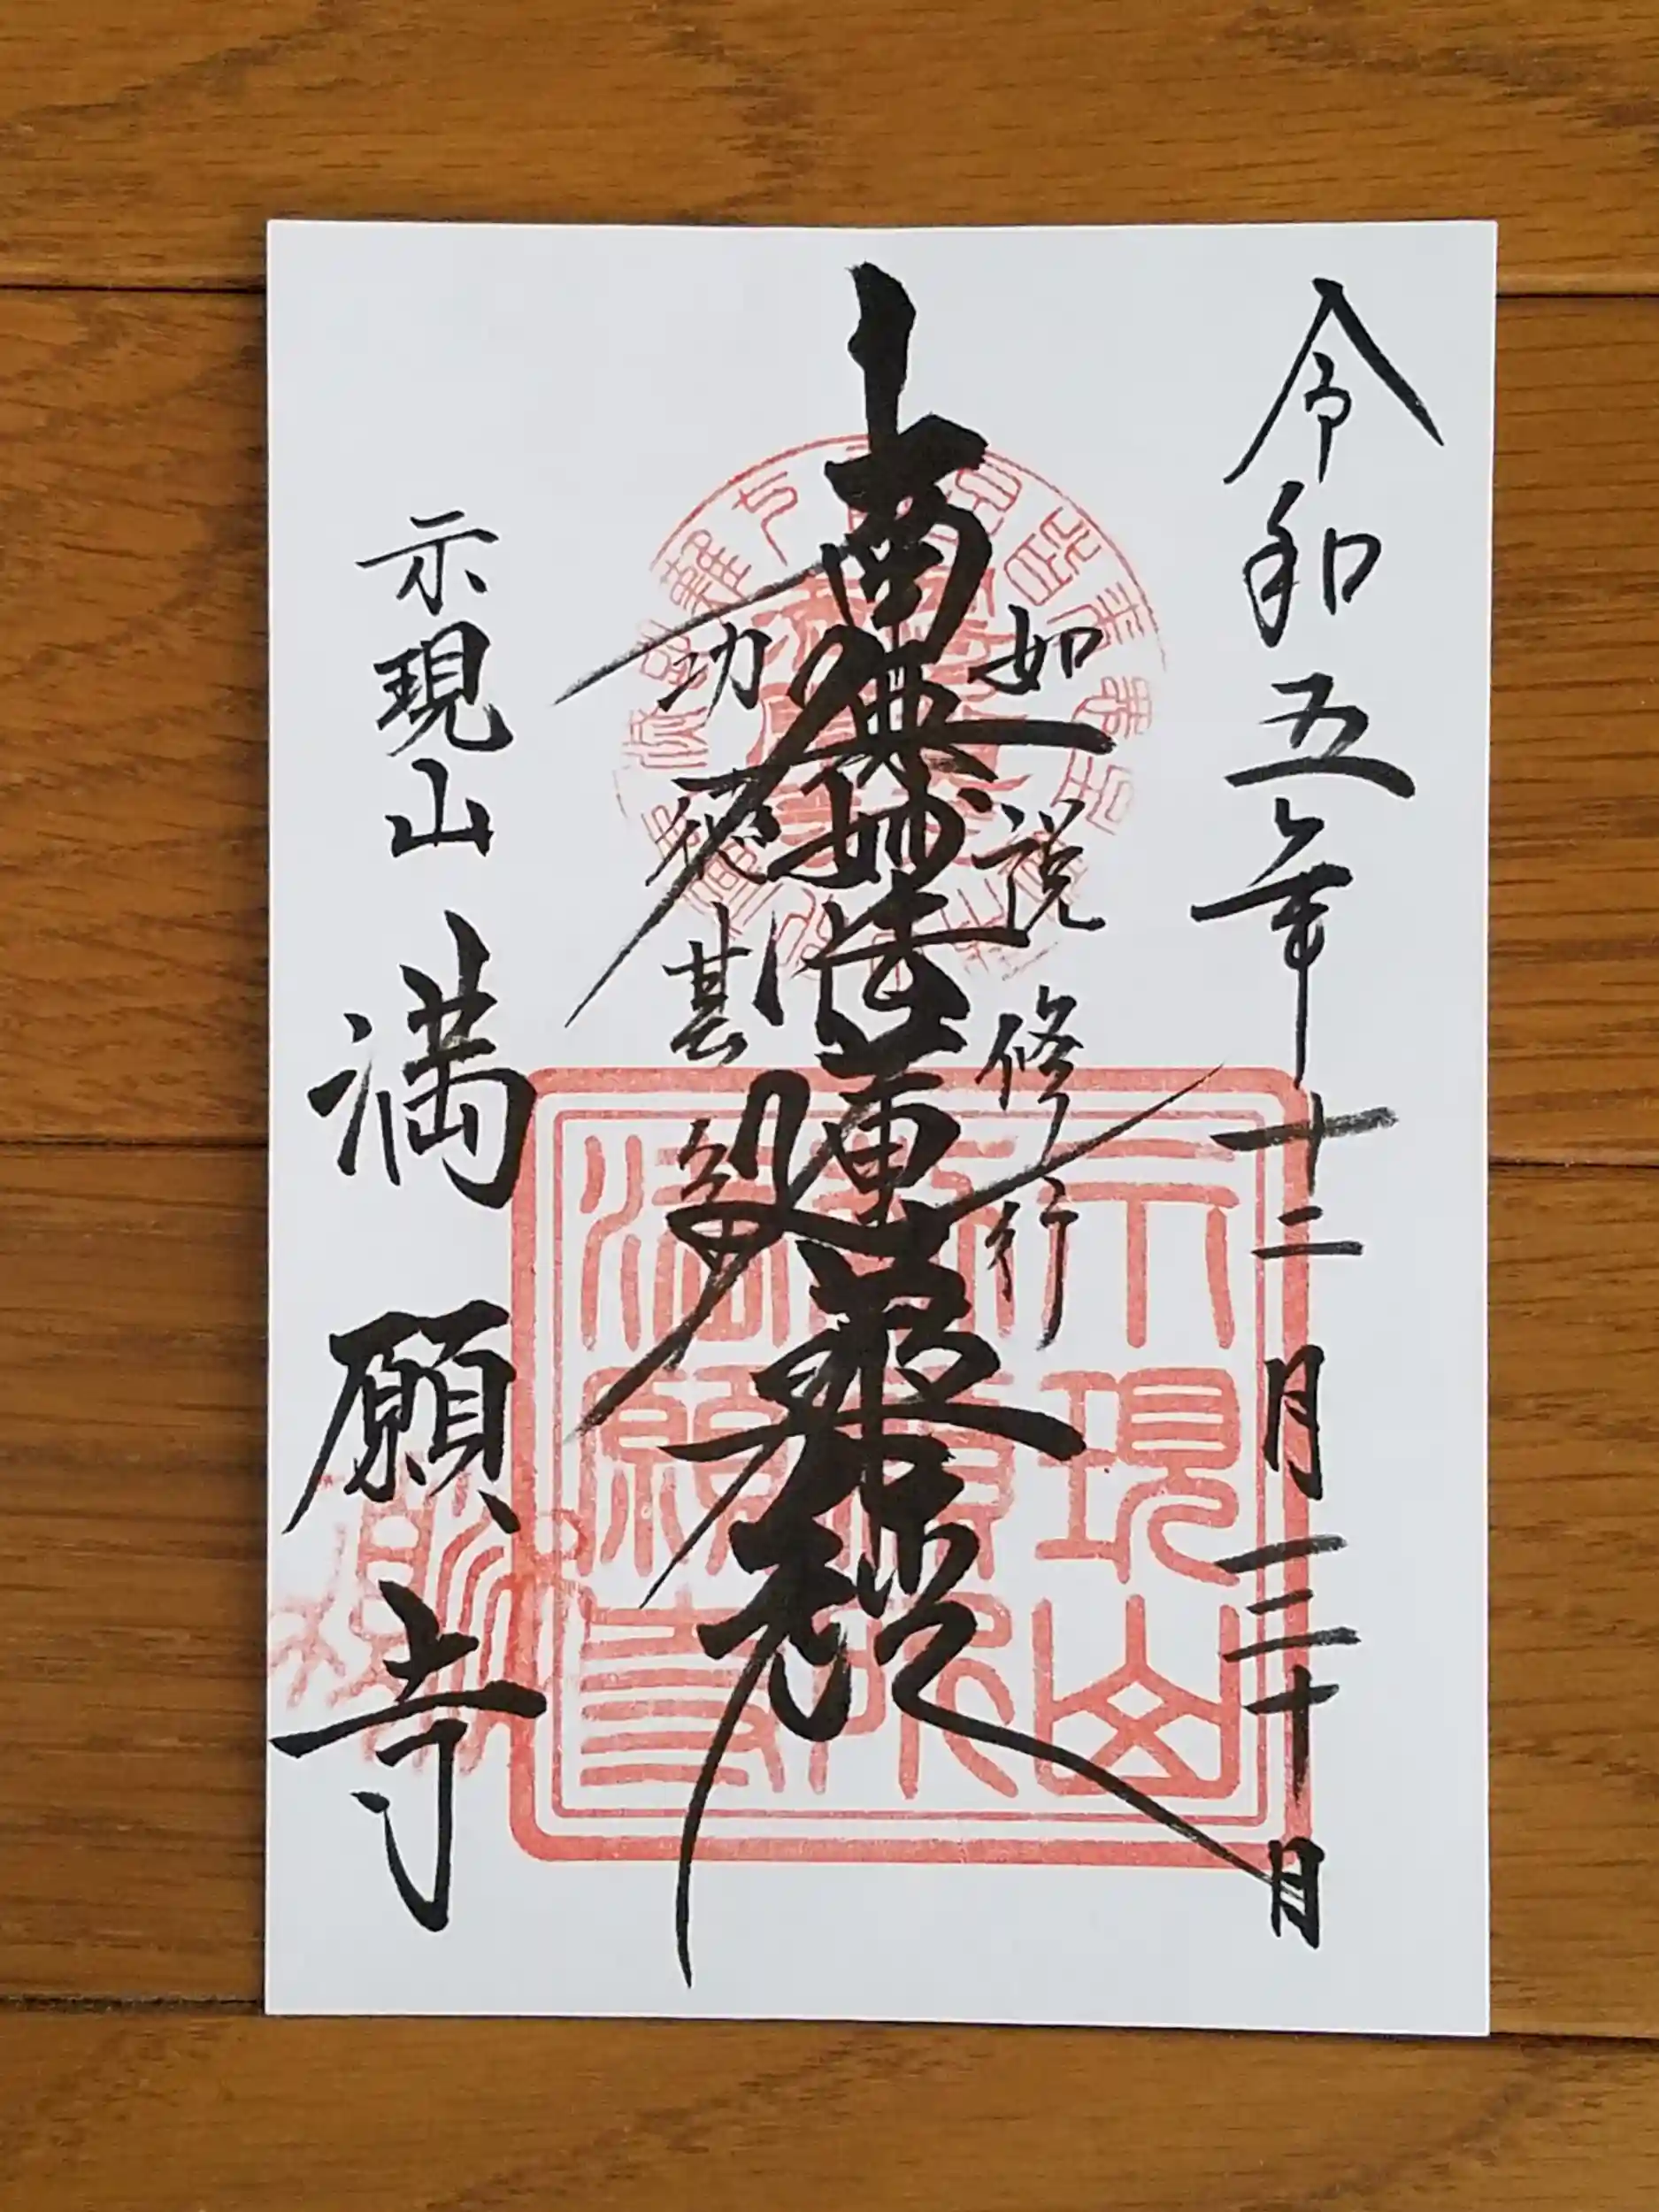 令和五年十二月三十日
如説修行
南無妙法蓮華経
功徳甚多
示現山
満願寺
示現山
満願寺